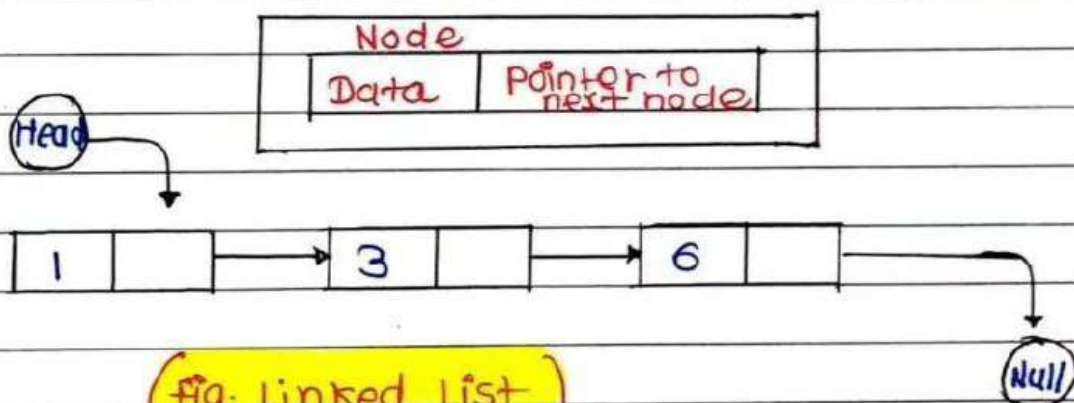 Node
Data Pointer to
next node
Head
1 3 6
Null
fig. Linked List